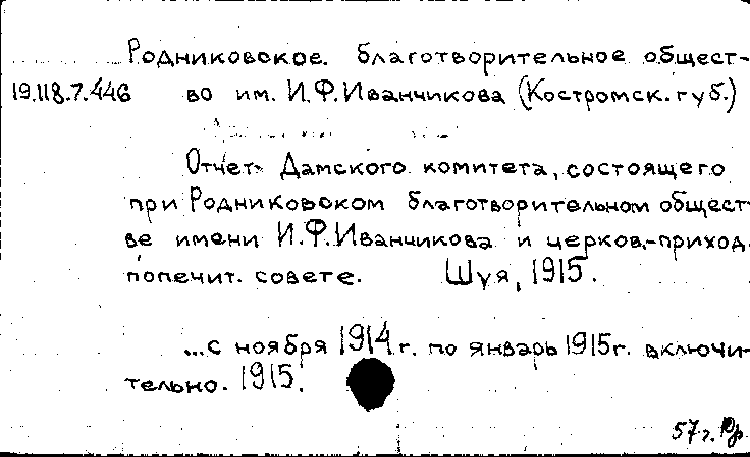 Родниковское благотворительное общест-
19.118.7.446 во им. И.Ф.Иванчикова (Костромск. губ.)
Отчет Дамского комитета, состоящего
при Родниковском благотворительном общест
ве имени И.Ф.Иванчикова и церков.-приход.
попечит. совете. Шуя, 1915.
...с ноября 1914г. по январь 1915г. включи-
тельно. 1915.
57г.